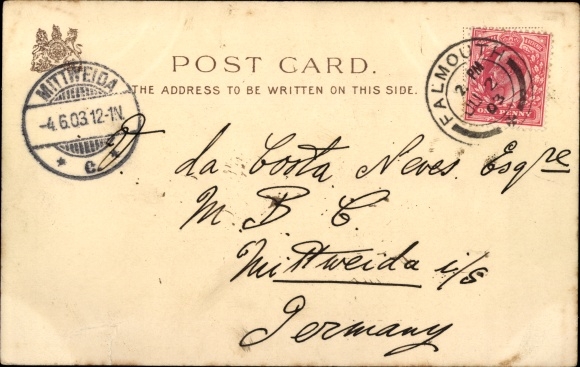 POST CARD.
THE ADDRESS TO BE WRITTEN ON THIS SIDE.
MITTWEIDA
-4.6.03.12-1N.
* C. 1
FALMOUTH
2. PM
JU 2
03
ONE PENNY
da Costa Neves Esqre
M. B. C.
Mittweida i/s
Germany